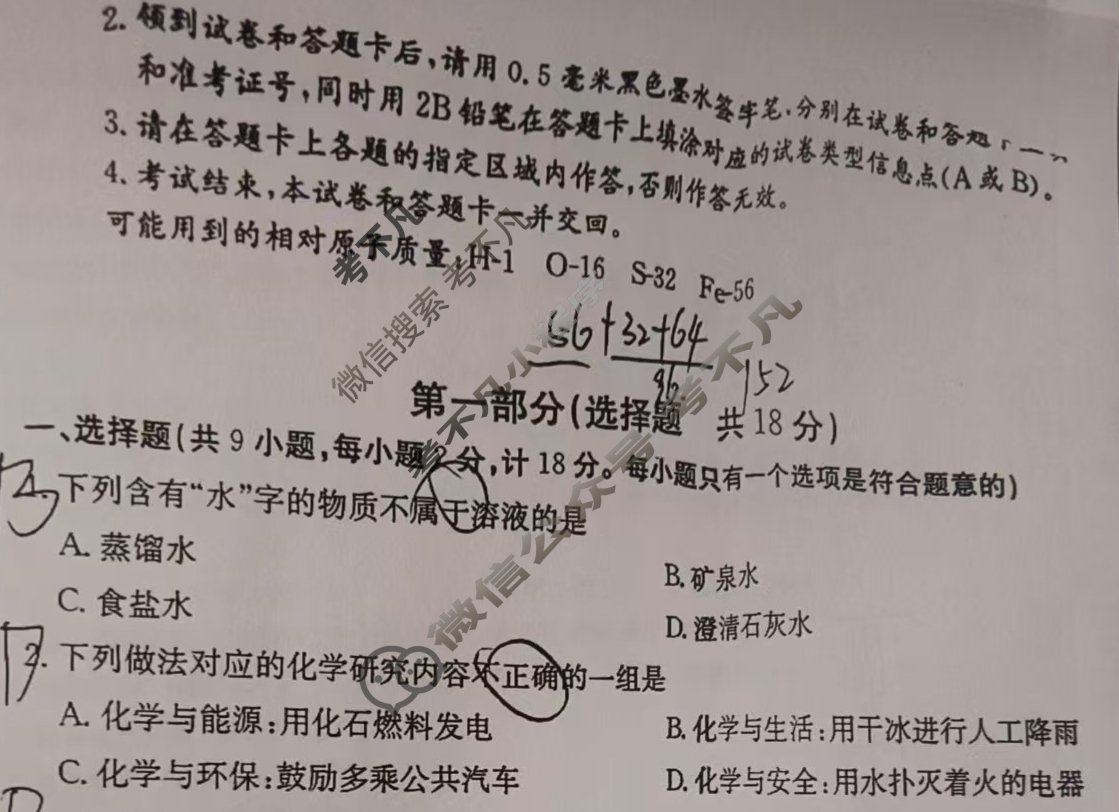 2. 领到试卷和答题卡后，请用0.5毫米黑色墨水签字笔，分别在试卷和答题
和准考证号，同时用2B铅笔在答题卡上填涂对应的试卷类型信息点(A或B)。
3. 请在答题卡上各题的指定区域内作答，否则作答无效。
4. 考试结束，本试卷和答题卡一并交回。
可能用到的相对原子质量：H-1 O-16 S-32 Fe-56
56+32+64
96 152
第一部分(选择题 共18分)
一、选择题(共9小题，每小题2分，计18分。每小题只有一个选项是符合题意的)
下列含有“水”字的物质不属于溶液的是
A. 蒸馏水
B. 矿泉水
C. 食盐水
D. 澄清石灰水
2. 下列做法对应的化学研究内容不正确的一组是
A. 化学与能源：用化石燃料发电
B. 化学与生活：用干冰进行人工降雨
C. 化学与环保：鼓励多乘公共汽车
D. 化学与安全：用水扑灭着火的电器
考不凡
微信搜索 考不凡
考不凡小程序
微信公众号 考不凡